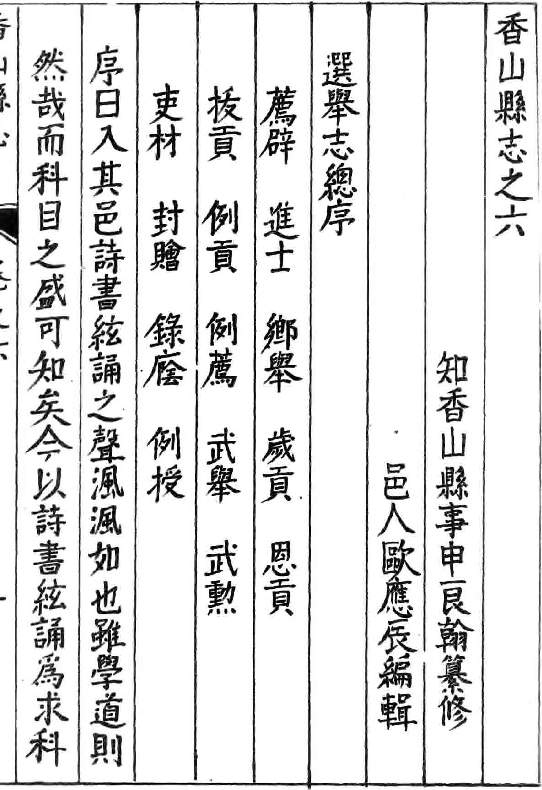 香山縣志之六
知香山縣事申良翰纂修
邑人歐應辰編輯
選舉志總序
薦辟 進士 鄉舉 歲貢 恩貢
拔貢 例貢 例薦 武舉 武勲
吏材 封贈 錄廕 例授
序曰入其邑詩書絃誦之聲渢渢如也雖學道則
然哉而科目之盛可知矣今以詩書絃誦爲求科
香山縣志
卷之六
一